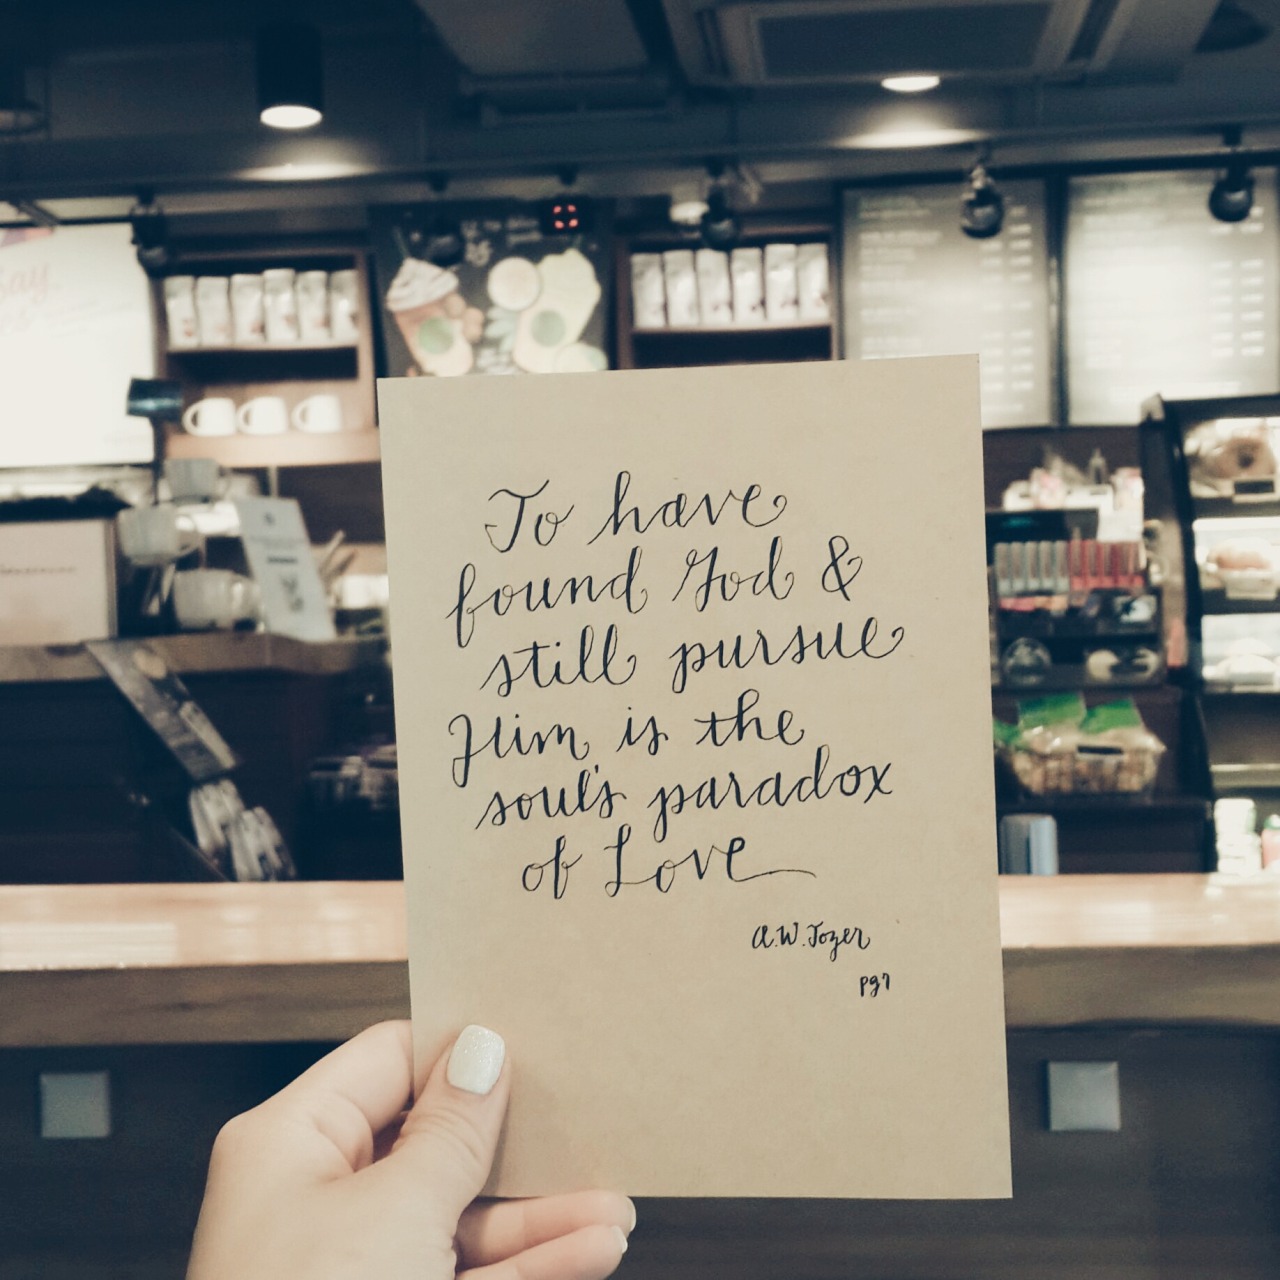 To have
found God &
still pursue
Him, is the
soul's paradox
of Love
A.W. Tozer
pg 7